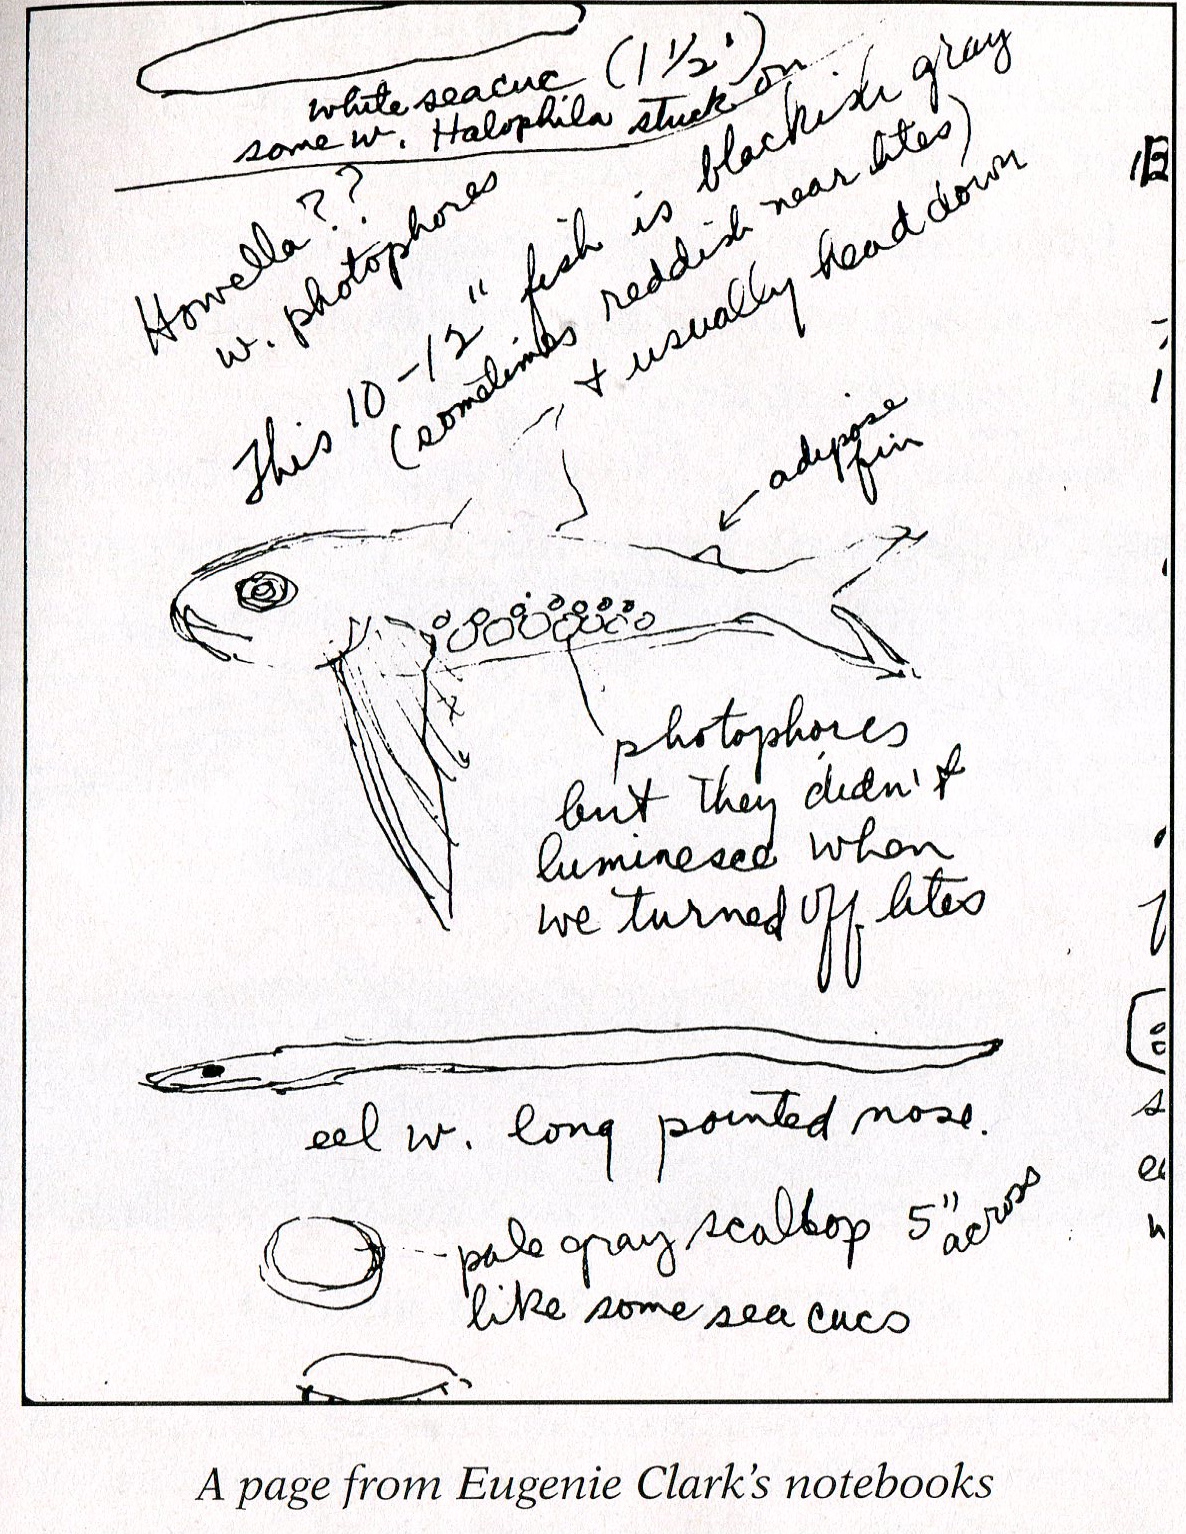 white seacuc (1 1/2')
some w. Halophila stuck on
Howella ??
w. photophores
This 10-12" fish is blackish gray
(sometimes reddish near lites)
+ usually head down
adipose
fin
photophores
but they didn't
luminesce when
we turned off lites
eel w. long pointed nose.
pale gray scallop 5" across
like some sea cucs
A page from Eugenie Clark's notebooks